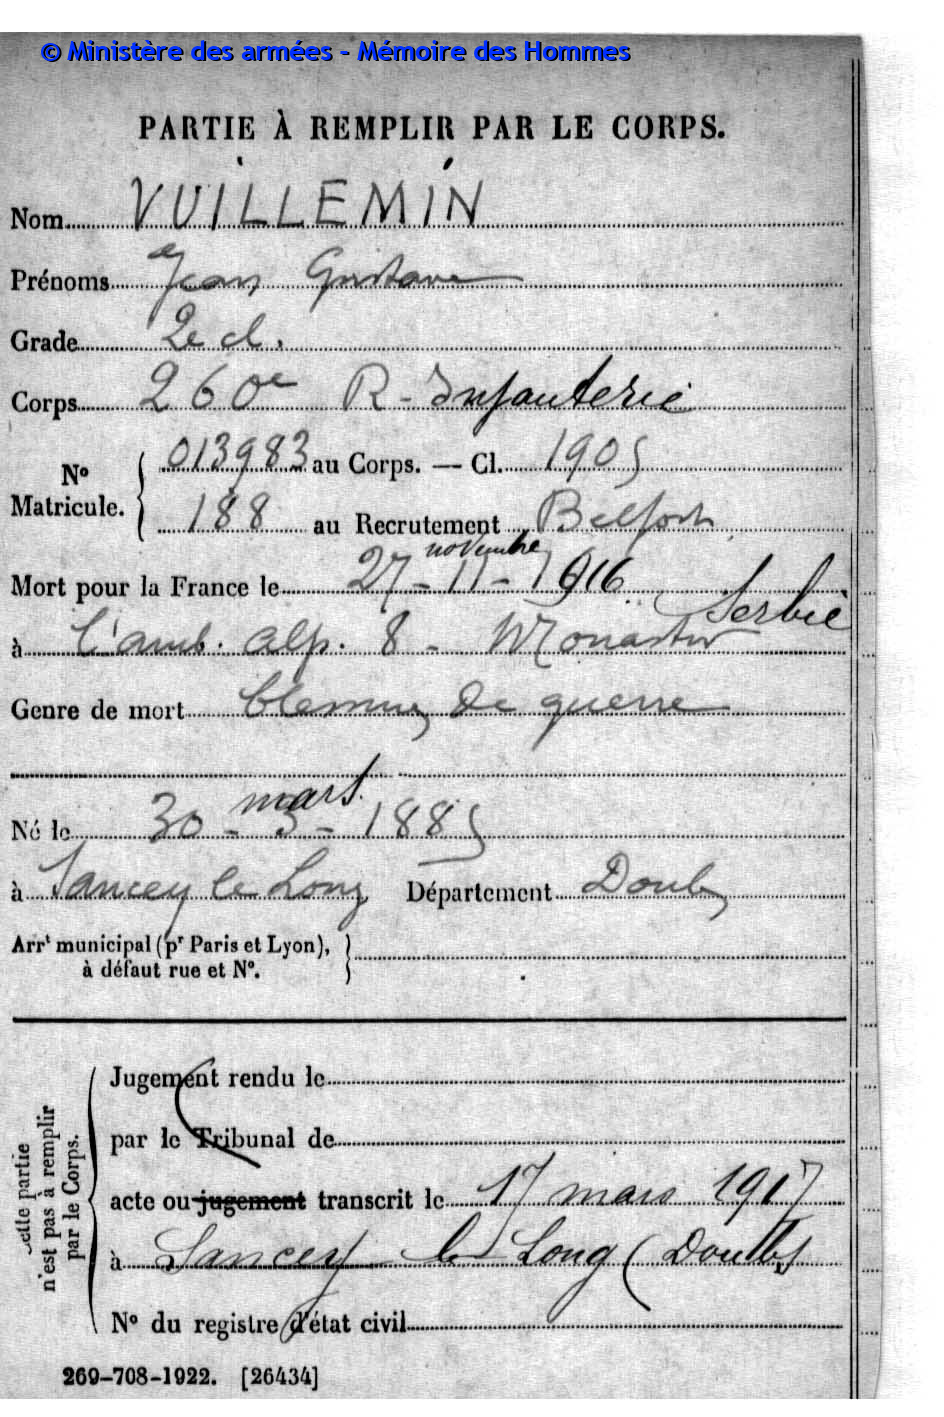 © Ministère des armées - Mémoire des Hommes
PARTIE À REMPLIR PAR LE CORPS.
Nom VUILLEMIN
Prénoms Jean Gustave
Grade 2e cl.
Corps 260e R- Infanterie
No Matricule. 013983 au Corps. — Cl. 1905
188 au Recrutement Belfort
novembre
Mort pour la France le 27-11-1916
Serbie
à l'amb. alp. 8 - Monastir
Genre de mort blessures de guerre
mars
Né le 30-3-1885
à Sancey le Long Département Doubs
Arrt municipal (pr Paris et Lyon),
à défaut rue et No.
Cette partie
n'est pas à remplir
par le Corps.
Jugement rendu le
par le Tribunal de
acte ou jugement transcrit le 17 mars 1917
à Sancey le Long (Doubs)
No du registre d'état civil
269-708-1922. [26434]